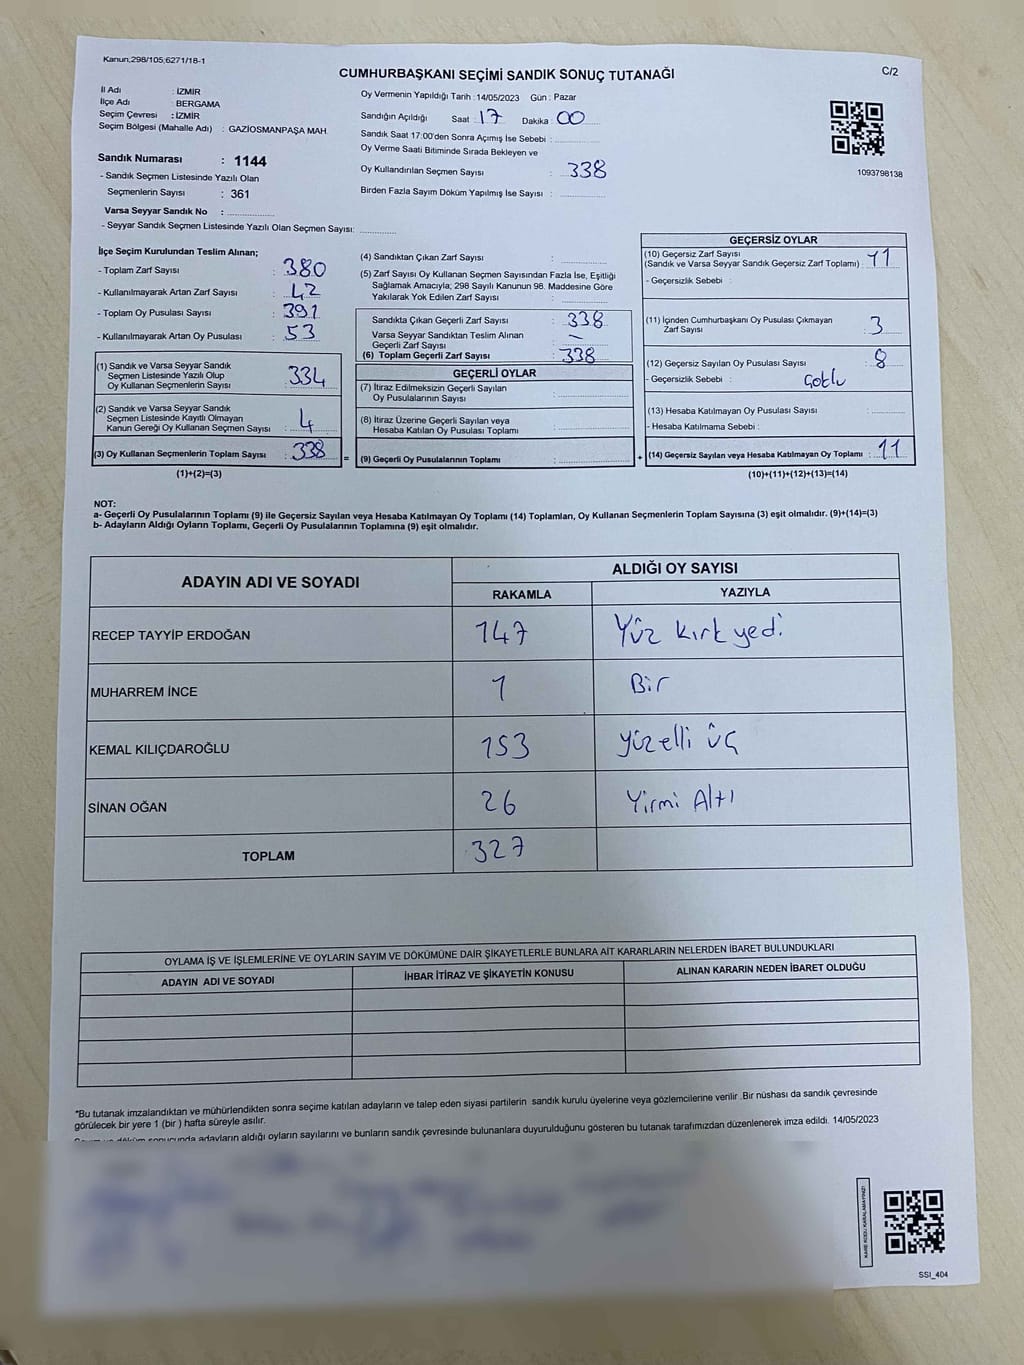 Kanun,298/105;6271/18-1
CUMHURBAŞKANI SEÇİMİ SANDIK SONUÇ TUTANAĞI
C/2
İl Adı : İZMİR
İlçe Adı : BERGAMA
Seçim Çevresi : İZMİR
Seçim Bölgesi (Mahalle Adı) : GAZİOSMANPAŞA MAH.
Sandık Numarası : 1144
- Sandık Seçmen Listesinde Yazılı Olan
Seçmenlerin Sayısı : 361
Varsa Seyyar Sandık No :
- Seyyar Sandık Seçmen Listesinde Yazılı Olan Seçmen Sayısı:
Oy Vermenin Yapıldığı Tarih : 14/05/2023 Gün : Pazar
Sandığın Açıldığı Saat : 17 Dakika : 00
Sandık Saat 17:00'den Sonra Açımış İse Sebebi :
Oy Verme Saati Bitiminde Sırada Bekleyen ve
Oy Kullandırılan Seçmen Sayısı : 338
Birden Fazla Sayım Döküm Yapılmış İse Sayısı :
1093798138
İlçe Seçim Kurulundan Teslim Alınan;
- Toplam Zarf Sayısı : 380
- Kullanılmayarak Artan Zarf Sayısı : 42
- Toplam Oy Pusulası Sayısı : 391
- Kullanılmayarak Artan Oy Pusulası : 53
(1) Sandık ve Varsa Seyyar Sandık
Seçmen Listesinde Yazılı Olup
Oy Kullanan Seçmenlerin Sayısı : 334
(2) Sandık ve Varsa Seyyar Sandık
Seçmen Listesinde Kayıtlı Olmayan
Kanun Gereği Oy Kullanan Seçmen Sayısı : 4
(3) Oy Kullanan Seçmenlerin Toplam Sayısı : 338
(1)+(2)=(3)
(4) Sandıktan Çıkan Zarf Sayısı :
(5) Zarf Sayısı Oy Kullanan Seçmen Sayısından Fazla İse, Eşitliği
Sağlamak Amacıyla; 298 Sayılı Kanunun 98. Maddesine Göre
Yakılarak Yok Edilen Zarf Sayısı :
Sandıkta Çıkan Geçerli Zarf Sayısı : 338
Varsa Seyyar Sandıktan Teslim Alınan
Geçerli Zarf Sayısı : -
(6) Toplam Geçerli Zarf Sayısı : 338
GEÇERLİ OYLAR
(7) İtiraz Edilmeksizin Geçerli Sayılan
Oy Pusulalarının Sayısı :
(8) İtiraz Üzerine Geçerli Sayılan veya
Hesaba Katılan Oy Pusulası Toplamı :
= (9) Geçerli Oy Pusulalarının Toplamı :
GEÇERSİZ OYLAR
(10) Geçersiz Zarf Sayısı
(Sandık ve Varsa Seyyar Sandık Geçersiz Zarf Toplamı) : 11
- Geçersizlik Sebebi :
(11) İçinden Cumhurbaşkanı Oy Pusulası Çıkmayan
Zarf Sayısı : 3
(12) Geçersiz Sayılan Oy Pusulası Sayısı : 8
- Geçersizlik Sebebi :
(13) Hesaba Katılmayan Oy Pusulası Sayısı :
- Hesaba Katılmama Sebebi :
+ (14) Geçersiz Sayılan veya Hesaba Katılmayan Oy Toplamı : 11
(10)+(11)+(12)+(13)=(14)
NOT:
a- Geçerli Oy Pusulalarının Toplamı (9) ile Geçersiz Sayılan veya Hesaba Katılmayan Oy Toplamı (14) Toplamları, Oy Kullanan Seçmenlerin Toplam Sayısına (3) eşit olmalıdır. (9)+(14)=(3)
b- Adayların Aldığı Oyların Toplamı, Geçerli Oy Pusulalarının Toplamına (9) eşit olmalıdır.
ADAYIN ADI VE SOYADI
ALDIĞI OY SAYISI
RAKAMLA YAZIYLA
RECEP TAYYİP ERDOĞAN 147 Yüz kırk yedi
MUHARREM İNCE 1 Bir
KEMAL KILIÇDAROĞLU 153 yüzelli üç
SİNAN OĞAN 26 Yirmi Altı
TOPLAM 327
OYLAMA İŞ VE İŞLEMLERİNE VE OYLARIN SAYIM VE DÖKÜMÜNE DAİR ŞİKAYETLERLE BUNLARA AİT KARARLARIN NELERDEN İBARET BULUNDUKLARI
ADAYIN ADI VE SOYADI İHBAR İTİRAZ VE ŞİKAYETİN KONUSU ALINAN KARARIN NEDEN İBARET OLDUĞU
*Bu tutanak imzalandıktan ve mühürlendikten sonra seçime katılan adayların ve talep eden siyasi partilerin sandık kurulu üyelerine veya gözlemcilerine verilir .Bir nüshası da sandık çevresinde
görülecek bir yere 1 (bir ) hafta süreyle asılır.
sonucunda adayların aldığı oyların sayılarını ve bunların sandık çevresinde bulunanlara duyurulduğunu gösteren bu tutanak tarafımızdan düzenlenerek imza edildi. 14/05/2023
KARE KODU KARALAMAYINIZ!
SSI_404